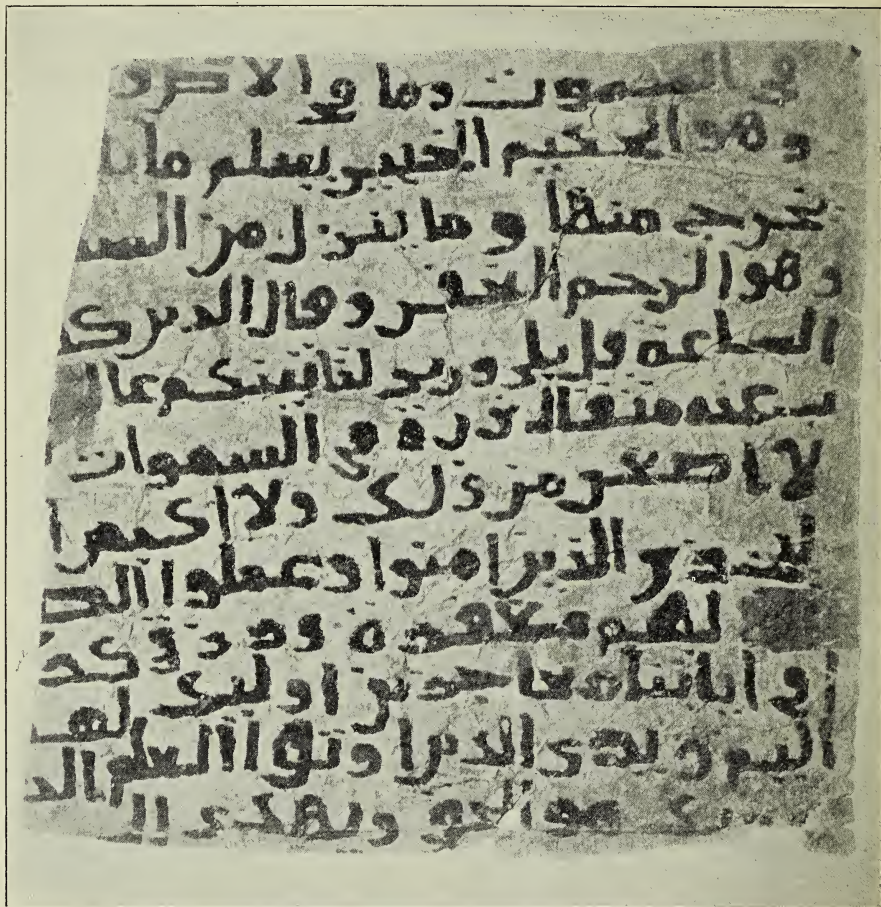 في السموت وما في الارض و
وهو الحكيم الخبير يعلم ما يل
يخرج منها وما ينزل من السم
وهو الرحم الغفر وقال الذين كف
الساعة قل بلى وربي لتاتينكم عا
عنه مثقال ذرة في السموات
لا اصغر من ذلك ولا اكبر ا
ليجزي الذين امنوا وعملوا الص
لهم مغفرة ورزق كر
في اياتنا معاجزين اولئك لهم
اليم ويرى الذين اوتوا العلم الذ
ربك هو الحق ويهدي ال